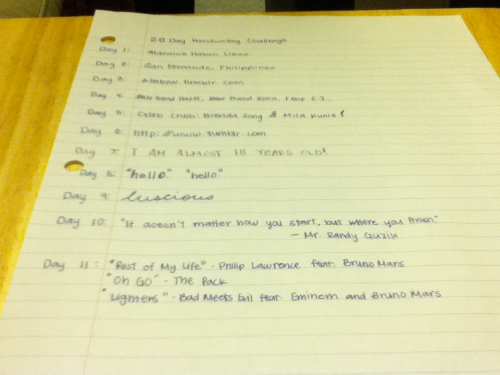 20 Day Handwriting Challenge
Day 1:
Day 2: San Fernando, Philippines
Day 3: .tumblr.com
Day 4: Best Friend
Day 5: Celeb Crush: Brenda Song & Mila Kunis!
Day 6: http://www.tumblr.com
Day 7: I AM ALMOST 18 YEARS OLD!
Day 8: "hello" "hello"
Day 9: luscious
Day 10: "It doesn't matter how you start, but where you finish"
– Mr. Randy Guzik
Day 11: "Rest of My Life" - Philip Lawrence feat. Bruno Mars
"Oh Go" - The Pack
"Lighters" - Bad Meets Evil feat. Eminem and Bruno Mars